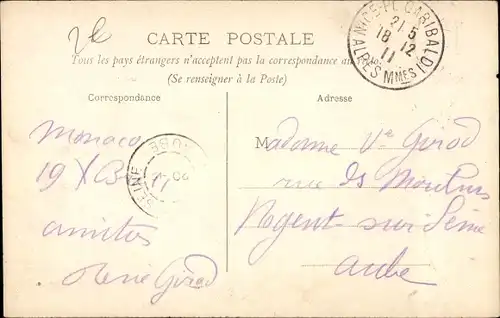 CARTE POSTALE
Tous les pays étrangers n'acceptent pas la correspondance au
(Se renseigner à la Poste)
NICE-PL. GARIBALDI
21 5
18 12
11
ALPES MMES
Correspondance
Adresse
Monaco
19 X
amitiés
René Girod
AUBE
SEINE
Madame Ve Girod
rue des Moulins
Nogent-sur-Seine
Aube